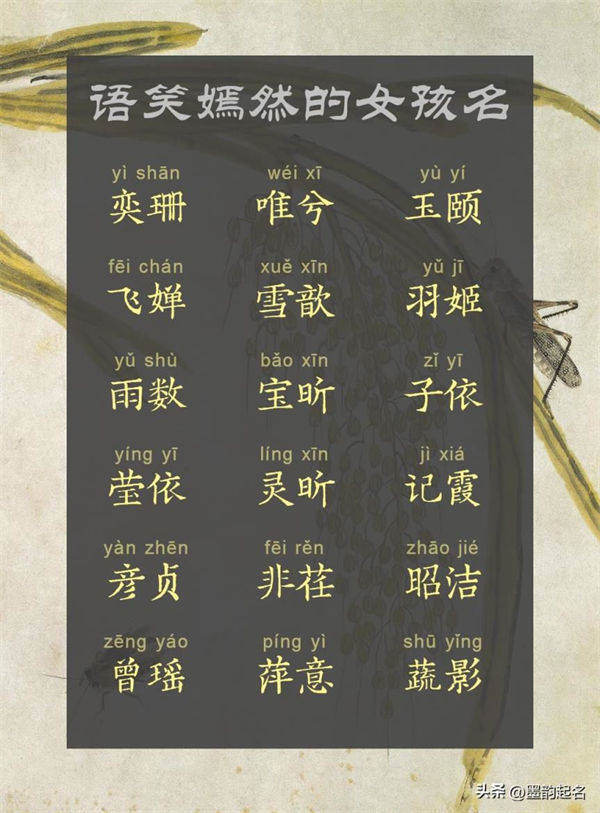 语笑嫣然的女孩名
yì shān wéi xī yù yí
奕珊 唯兮 玉颐
fēi chán xuě xīn yǔ jī
飞婵 雪歆 羽姬
yǔ shù bǎo xīn zǐ yī
雨数 宝昕 子依
yíng yī líng xīn jì xiá
莹依 灵昕 记霞
yàn zhēn fēi rěn zhāo jié
彦贞 非荏 昭洁
zēng yáo píng yì shū yǐng
曾瑶 萍意 蔬影
头条 @墨韵起名